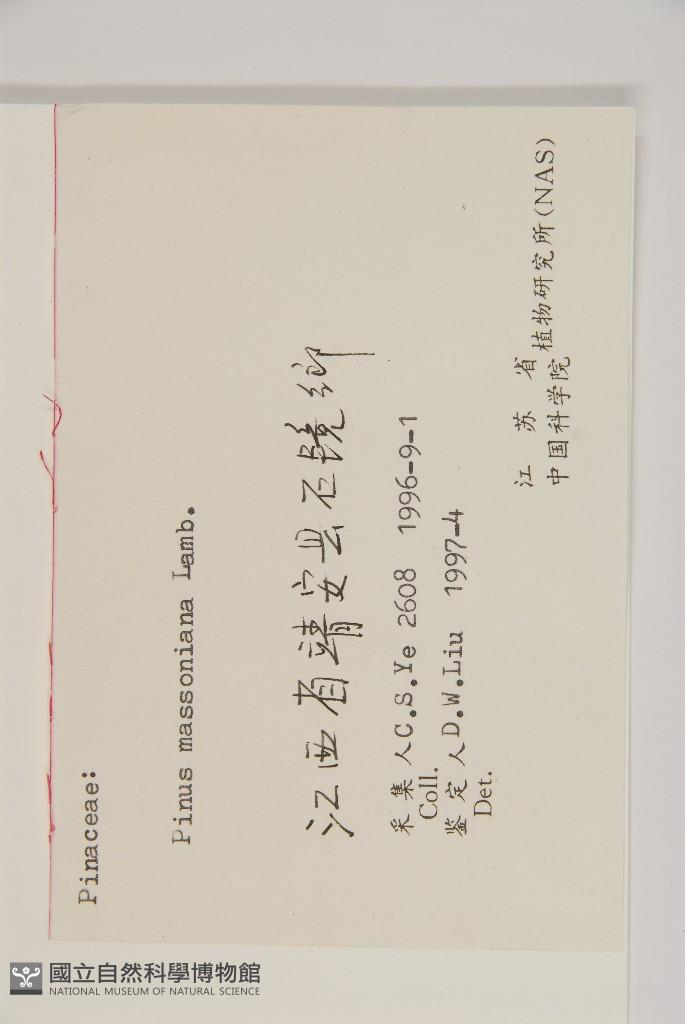 Pinaceae:
Pinus massoniana Lamb.
江西省靖安县石镜鄉
采集人C.S.Ye 2608 1996-9-1
Coll.
鉴定人D.W.Liu 1997-4
Det.
江苏省
中国科学院植物研究所(NAS)
國立自然科學博物館
NATIONAL MUSEUM OF NATURAL SCIENCE